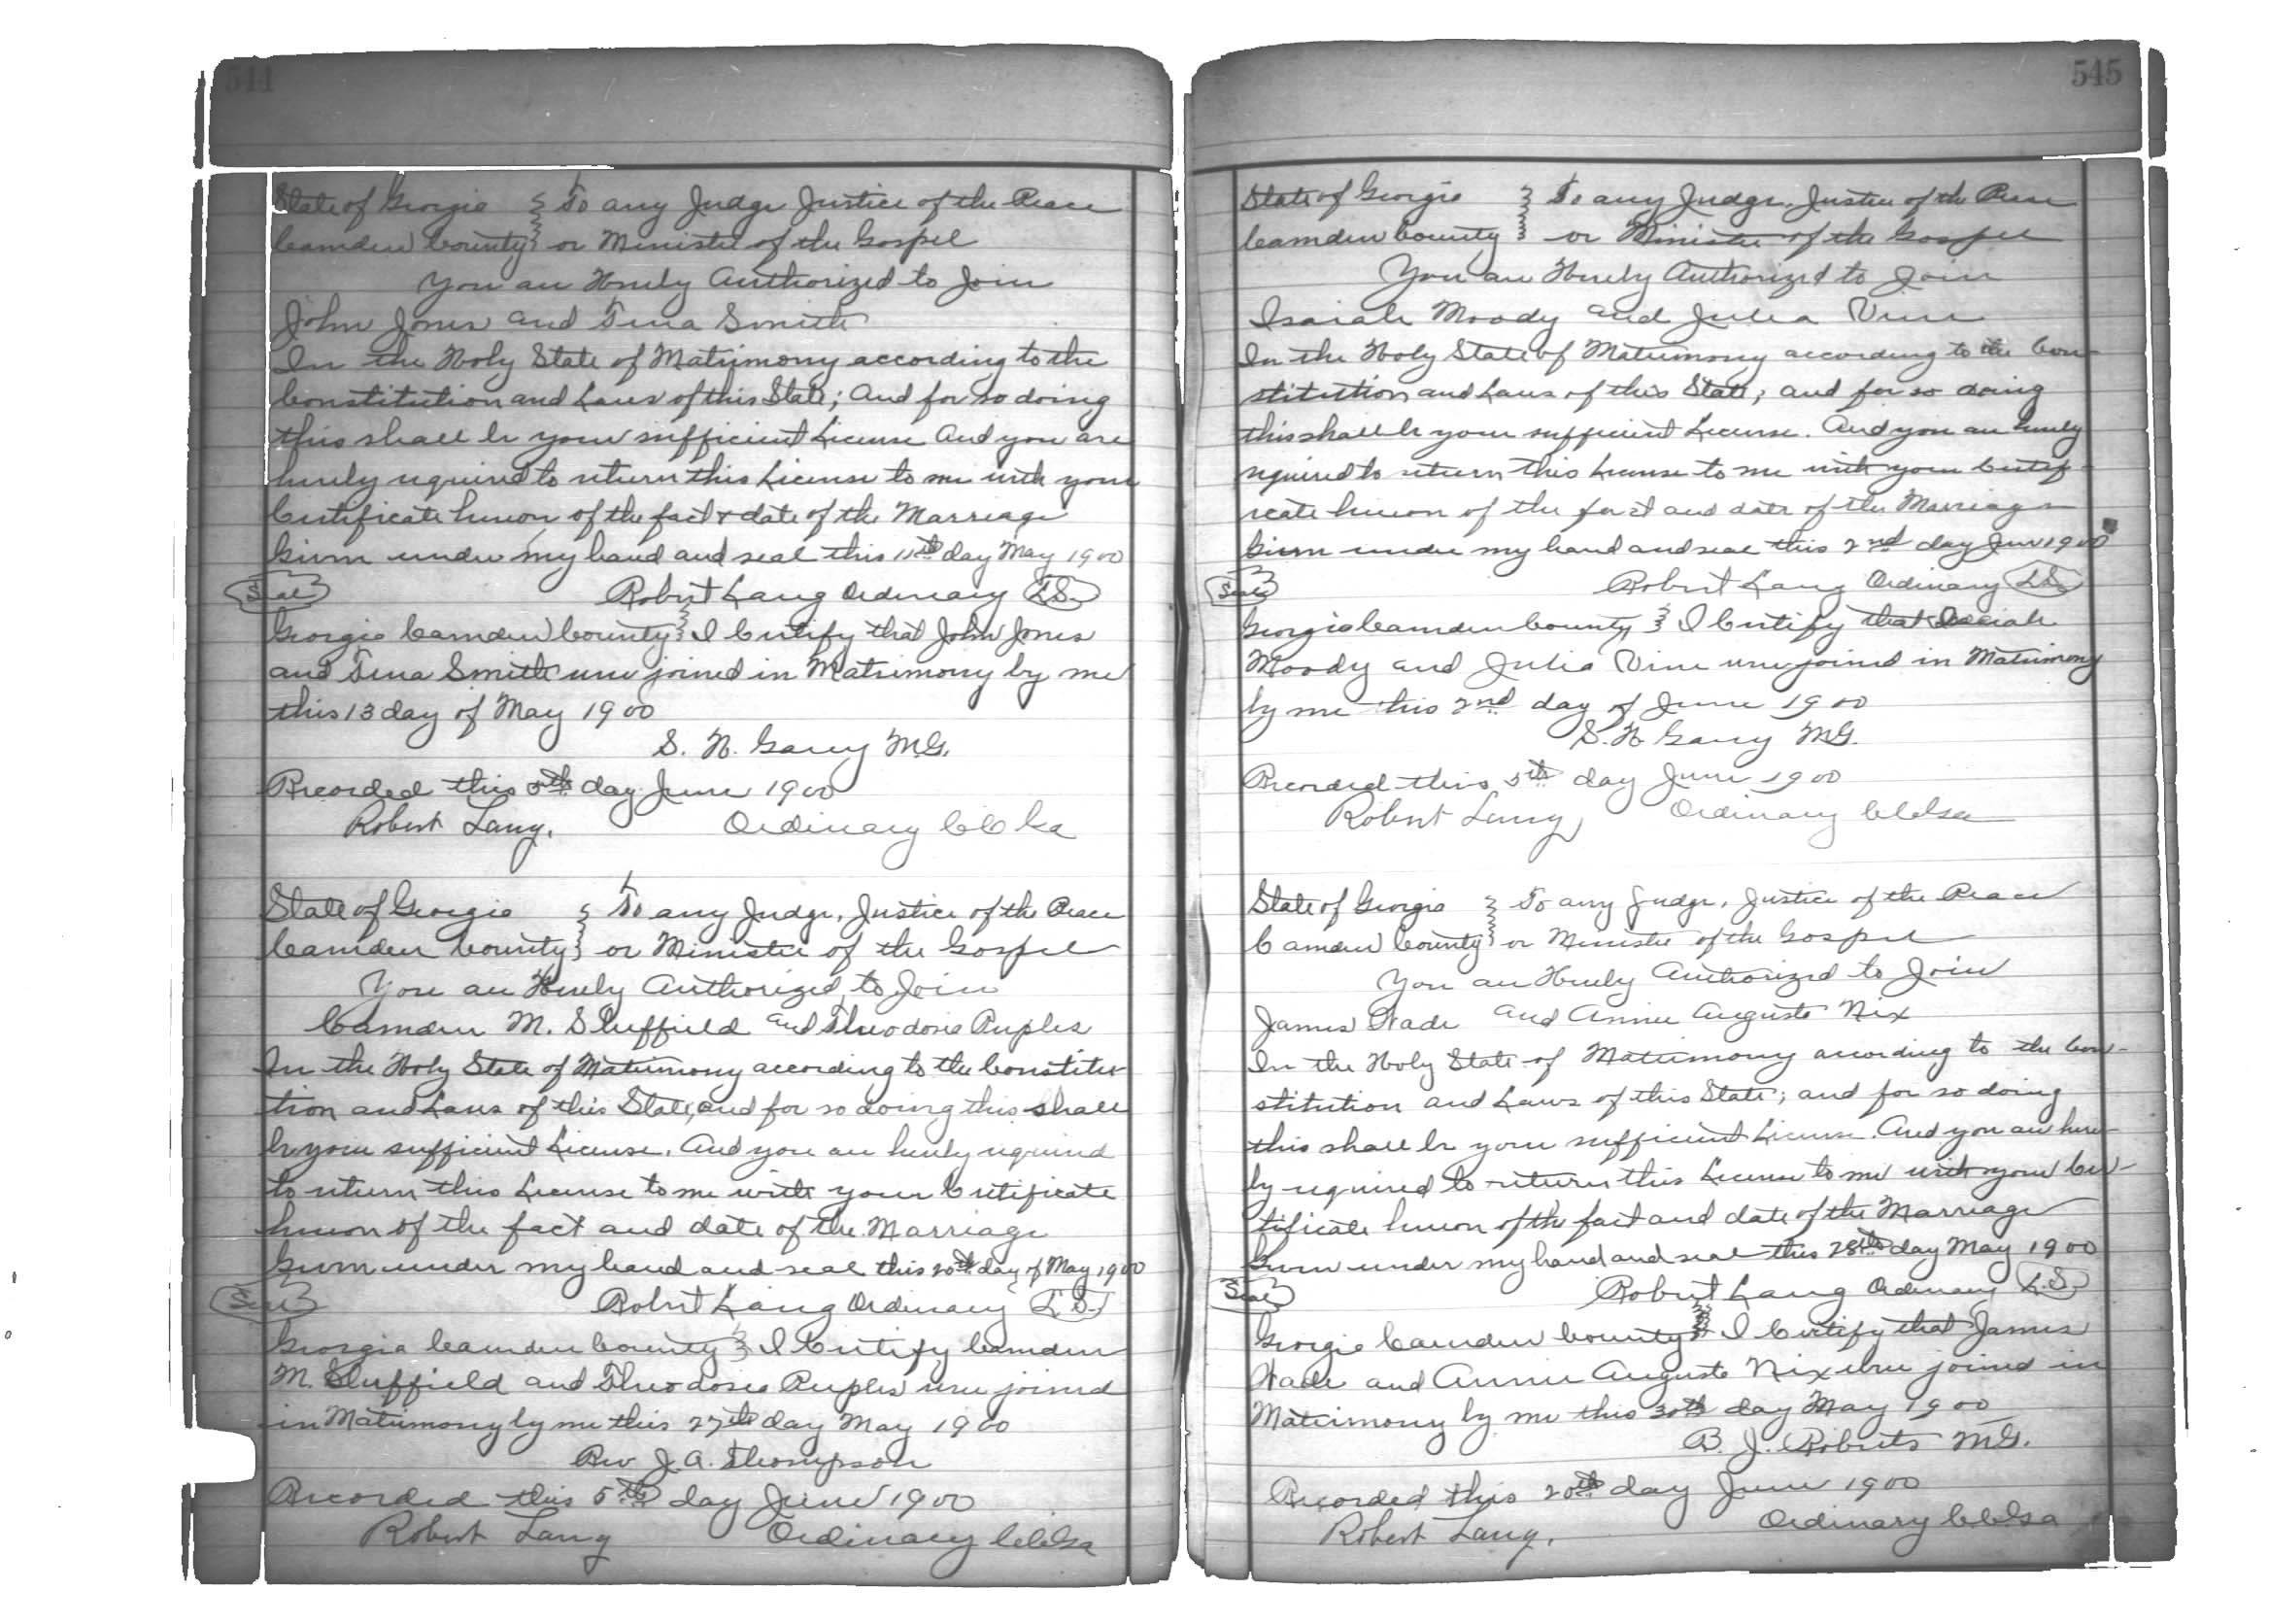 544
State of Georgia } To any Judge Justice of the Peace
Camden County } or Minister of the Gospel
You are Hereby Authorized to Join
John Jones and Tena Smith
In the Holy State of Matrimony according to the
Constitution and Laws of this State; And for so doing
this shall be your sufficient License And you are
hereby required to return this License to me with your
Certificate hereon of the fact & date of the Marriage
Given under my hand and seal this 11th day May 1900
Seal Robert Lang Ordinary L.S.
Georgia Camden County } I Certify that John Jones
and Tena Smith were joined in Matrimony by me
this 13 day of May 1900
S. N. Gary M.G.
Recorded this 5th day June 1900
Robert Lang, Ordinary CC Ga
State of Georgia } To any Judge, Justice of the Peace
Camden County } or Minister of the Gospel
You are Hereby Authorized to Join
Camden M. Sheffield and Theodosia Peeples
In the Holy State of Matrimony according to the Constitu
tion and Laws of this State, and for so doing this shall
be your sufficient License. And you are hereby required
to return this License to me with your Certificate
hereon of the fact and date of the Marriage
Given under my hand and seal this 20th day of May 1900
Seal Robert Lang Ordinary L.S.
Georgia Camden County } I Certify Camden
M. Sheffield and Theodosia Peeples were joined
in Matrimony by me this 27th day May 1900
Rev J. A. Thompson
Recorded this 5th day June 1900
Robert Lang Ordinary CCGa
545
State of Georgia } To any Judge, Justice of the Peace
Camden County } or Minister of the Gospel
You are Hereby Authorized to Join
Isaiah Moody and Julia Vine
In the Holy State of Matrimony according to the Con-
stitution and Laws of this State; and for so doing
this shall be your sufficient License. And you are hereby
required to return this License to me with your Certif-
icate hereon of the fact and date of the Marriage
Given under my hand and seal this 2nd day June 1900
Seal Robert Lang Ordinary L.S.
Georgia Camden County } I Certify that Isaiah
Moody and Julia Vine were joined in Matrimony
by me this 2nd day of June 1900
S. N. Gary M.G.
Recorded this 5th day June 1900
Robert Lang Ordinary CCGa
State of Georgia } To any Judge, Justice of the Peace
Camden County } or Minister of the Gospel
You are Hereby Authorized to Join
James Wade and Annie Augusta Nix
In the Holy State of Matrimony according to the Con-
stitution and Laws of this State; and for so doing
this shall be your sufficient License. And you are here-
by required to return this License to me with your Cer-
tificate hereon of the fact and date of the Marriage
Given under my hand and seal this 28th day May 1900
Seal Robert Lang Ordinary L.S.
Georgia Camden County } I Certify that James
Wade and Annie Augusta Nix were joined in
Matrimony by me this 30th day May 1900
B. J. Roberts M.G.
Recorded this 20th day June 1900
Robert Lang, Ordinary CCGa